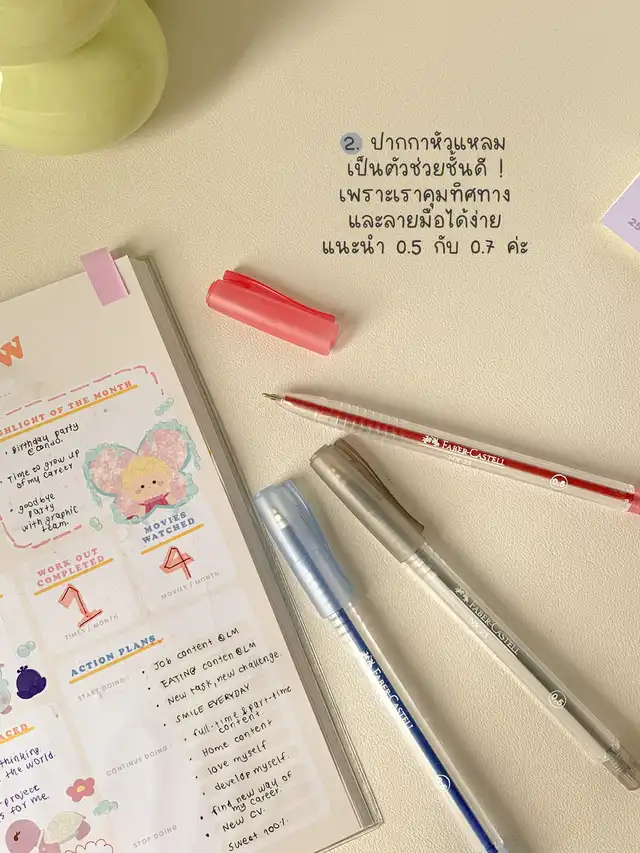 2. ปากกาหัวแหลม
เป็นตัวช่วยชั้นดี !
เพราะเราคุมทิศทาง
และลายมือได้ง่าย
แนะนำ 0.5 กับ 0.7 ค่ะ
W
HLIGHT OF THE MONTH
• Birthday party
@condo.
• Time to grow up
of my career
• goodbye
party
with graphic
team.
WORK OUT
COMPLETED
1
TIMES / MONTH
MOVIES
WATCHED
4
MOVIES / MONTH
ACTION PLANS
START DOING
• JOB content @LM
• EATING conten @LM
• New task, new challenge.
• SMILE EVERYDAY
CONTINUE DOING
• full-time & part-time
content.
• Home content
• love myself
• develop myself.
STOP DOING
• find new way of
my career.
• New CV.
• Sweet 100%.
ACED
thinking
the world.
project
s for me.
FABER-CASTELL
FABER-CASTELL
0.5
FABER-CASTELL
25